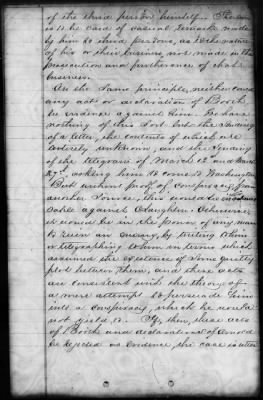 of the third person himself. The same
is to be said of casual remarks made
by him to third persons, as to the nature
of his or their business, not made in the
prosecution and furtherance of that
business.
On the same principle, neither could
any acts or declaration of Booth
be evidence against him. We have
nothing of this sort but the sending
of a letter, the contents of which are
entirely unknown, and the sending
of the telegrams of March 13th and March
27th asking him to come to Washington.
But without proof of conspiracy from
another source, this would be
against O'Laughlin. Otherwise
it would be in the power of any man
to ruin an enemy, by writing to him
or telegraphing to him in terms which
assumed the existence of some guilty
plot between them, and these acts
are consistent with the theory of
a mere attempt to persuade him
into a conspiracy, which he would
not yield to. If, then, these acts
of Booth and declarations of Arnold
be rejected as evidence the case is utter